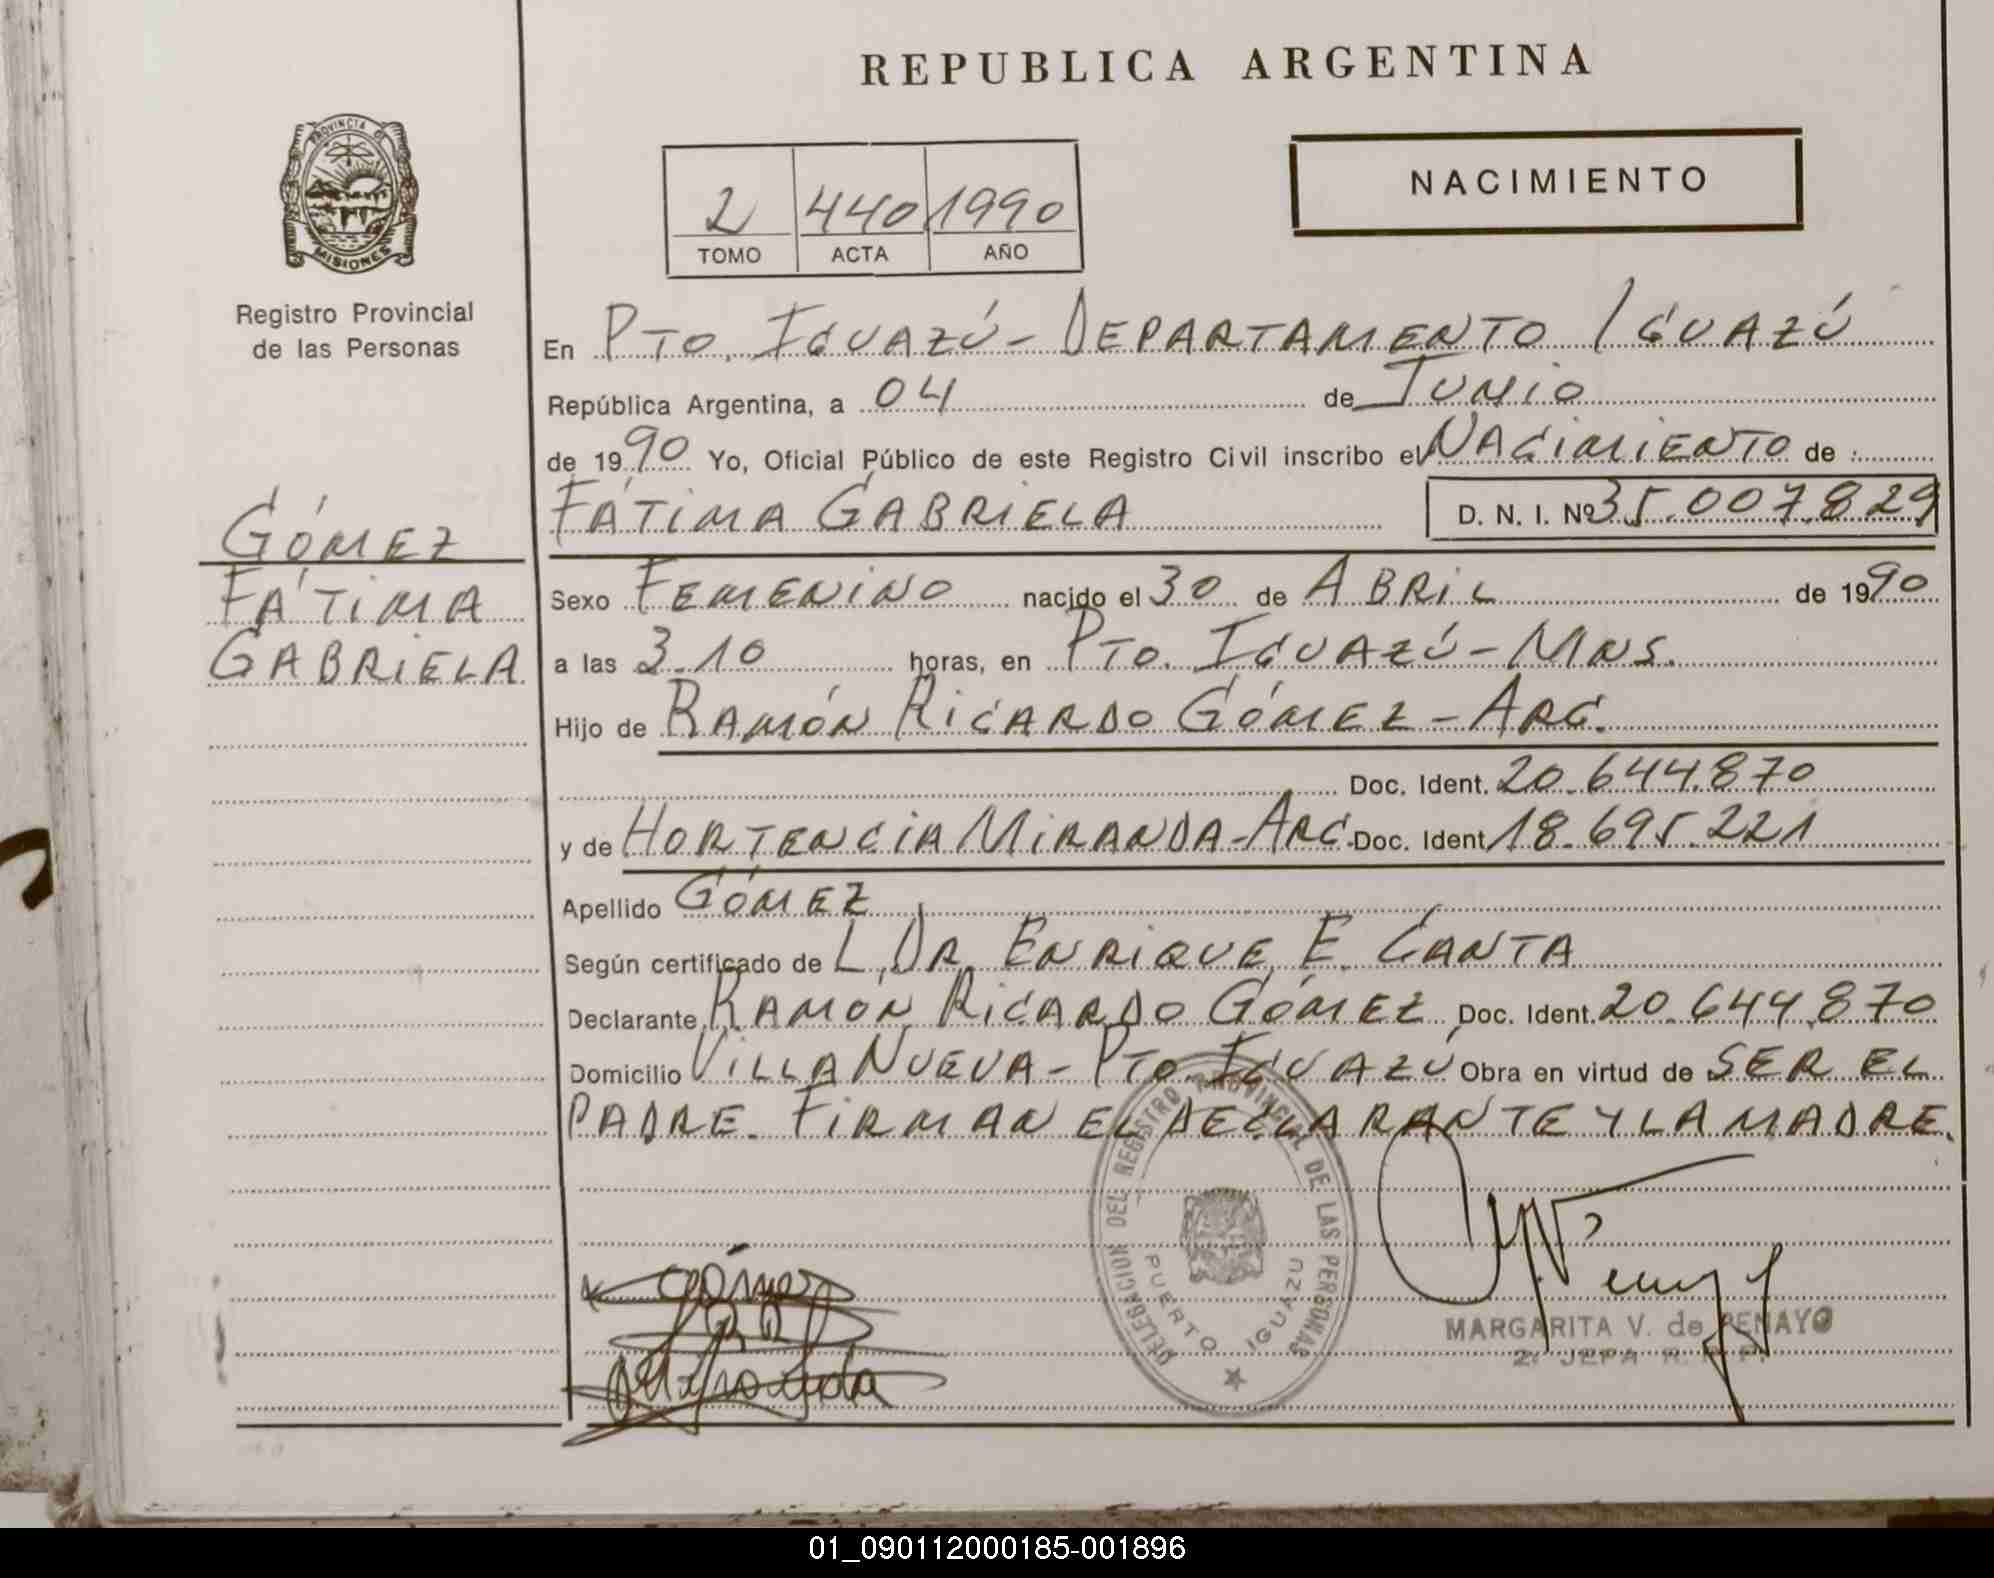 REPUBLICA ARGENTINA
PROVINCIA DE
MISIONES
Registro Provincial
de las Personas
NACIMIENTO
2 440 1990
TOMO ACTA AÑO
En PTO. IGUAZÚ - DEPARTAMENTO IGUAZÚ
República Argentina, a 04 de JUNIO
de 1990 Yo, Oficial Público de este Registro Civil inscribo el NACIMIENTO de :
FÁTIMA GABRIELA D. N. I. Nº 35.007.829
GÓMEZ
FÁTIMA
GABRIELA
Sexo FEMENINO nacido el 30 de ABRIL de 1990
a las 3.10 horas, en PTO. IGUAZÚ - MNS.
Hijo de RAMÓN RICARDO GÓMEZ - ARG.
Doc. Ident. 20.644.870
y de HORTENCIA MIRANDA - ARG. Doc. Ident 18.695.221
Apellido GÓMEZ
Según certificado de L. DR. ENRIQUE E. CANTA
Declarante RAMÓN RICARDO GÓMEZ Doc. Ident. 20.644.870
Domicilio VILLA NUEVA - PTO. IGUAZÚ Obra en virtud de SER EL
PADRE. FIRMAN EL DECLARANTE Y LA MADRE.
DELEGACION DEL REGISTRO PROVINCIAL DE LAS PERSONAS
PUERTO IGUAZU
Gómez
MARGARITA V. de PENAYO
2º JEFA R. P. P.
01_090112000185-001896